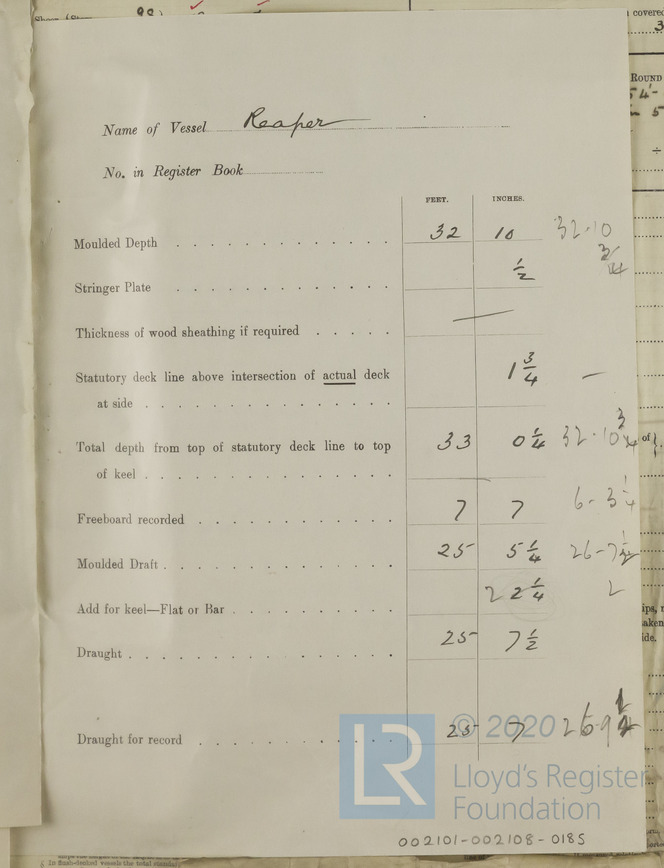 covered
3
ROUND
Name of Vessel Reaper
No. in Register Book
FEET. INCHES.
Moulded Depth 32 10 32-10
3/4
Stringer Plate 1/2
Thickness of wood sheathing if required —
Statutory deck line above intersection of actual deck 1 3/4 —
at side
Total depth from top of statutory deck line to top 33 0 1/4 32-10 3/4 of
of keel
Freeboard recorded 7 7 6-3 1/4
Moulded Draft 25 5 1/4 26-7 1/2
Add for keel—Flat or Bar 2 1/4 2
Draught 25 7 1/2
Draught for record 25 7
© 2020
LR
Lloyd's Register
Foundation
002101-002108-0185